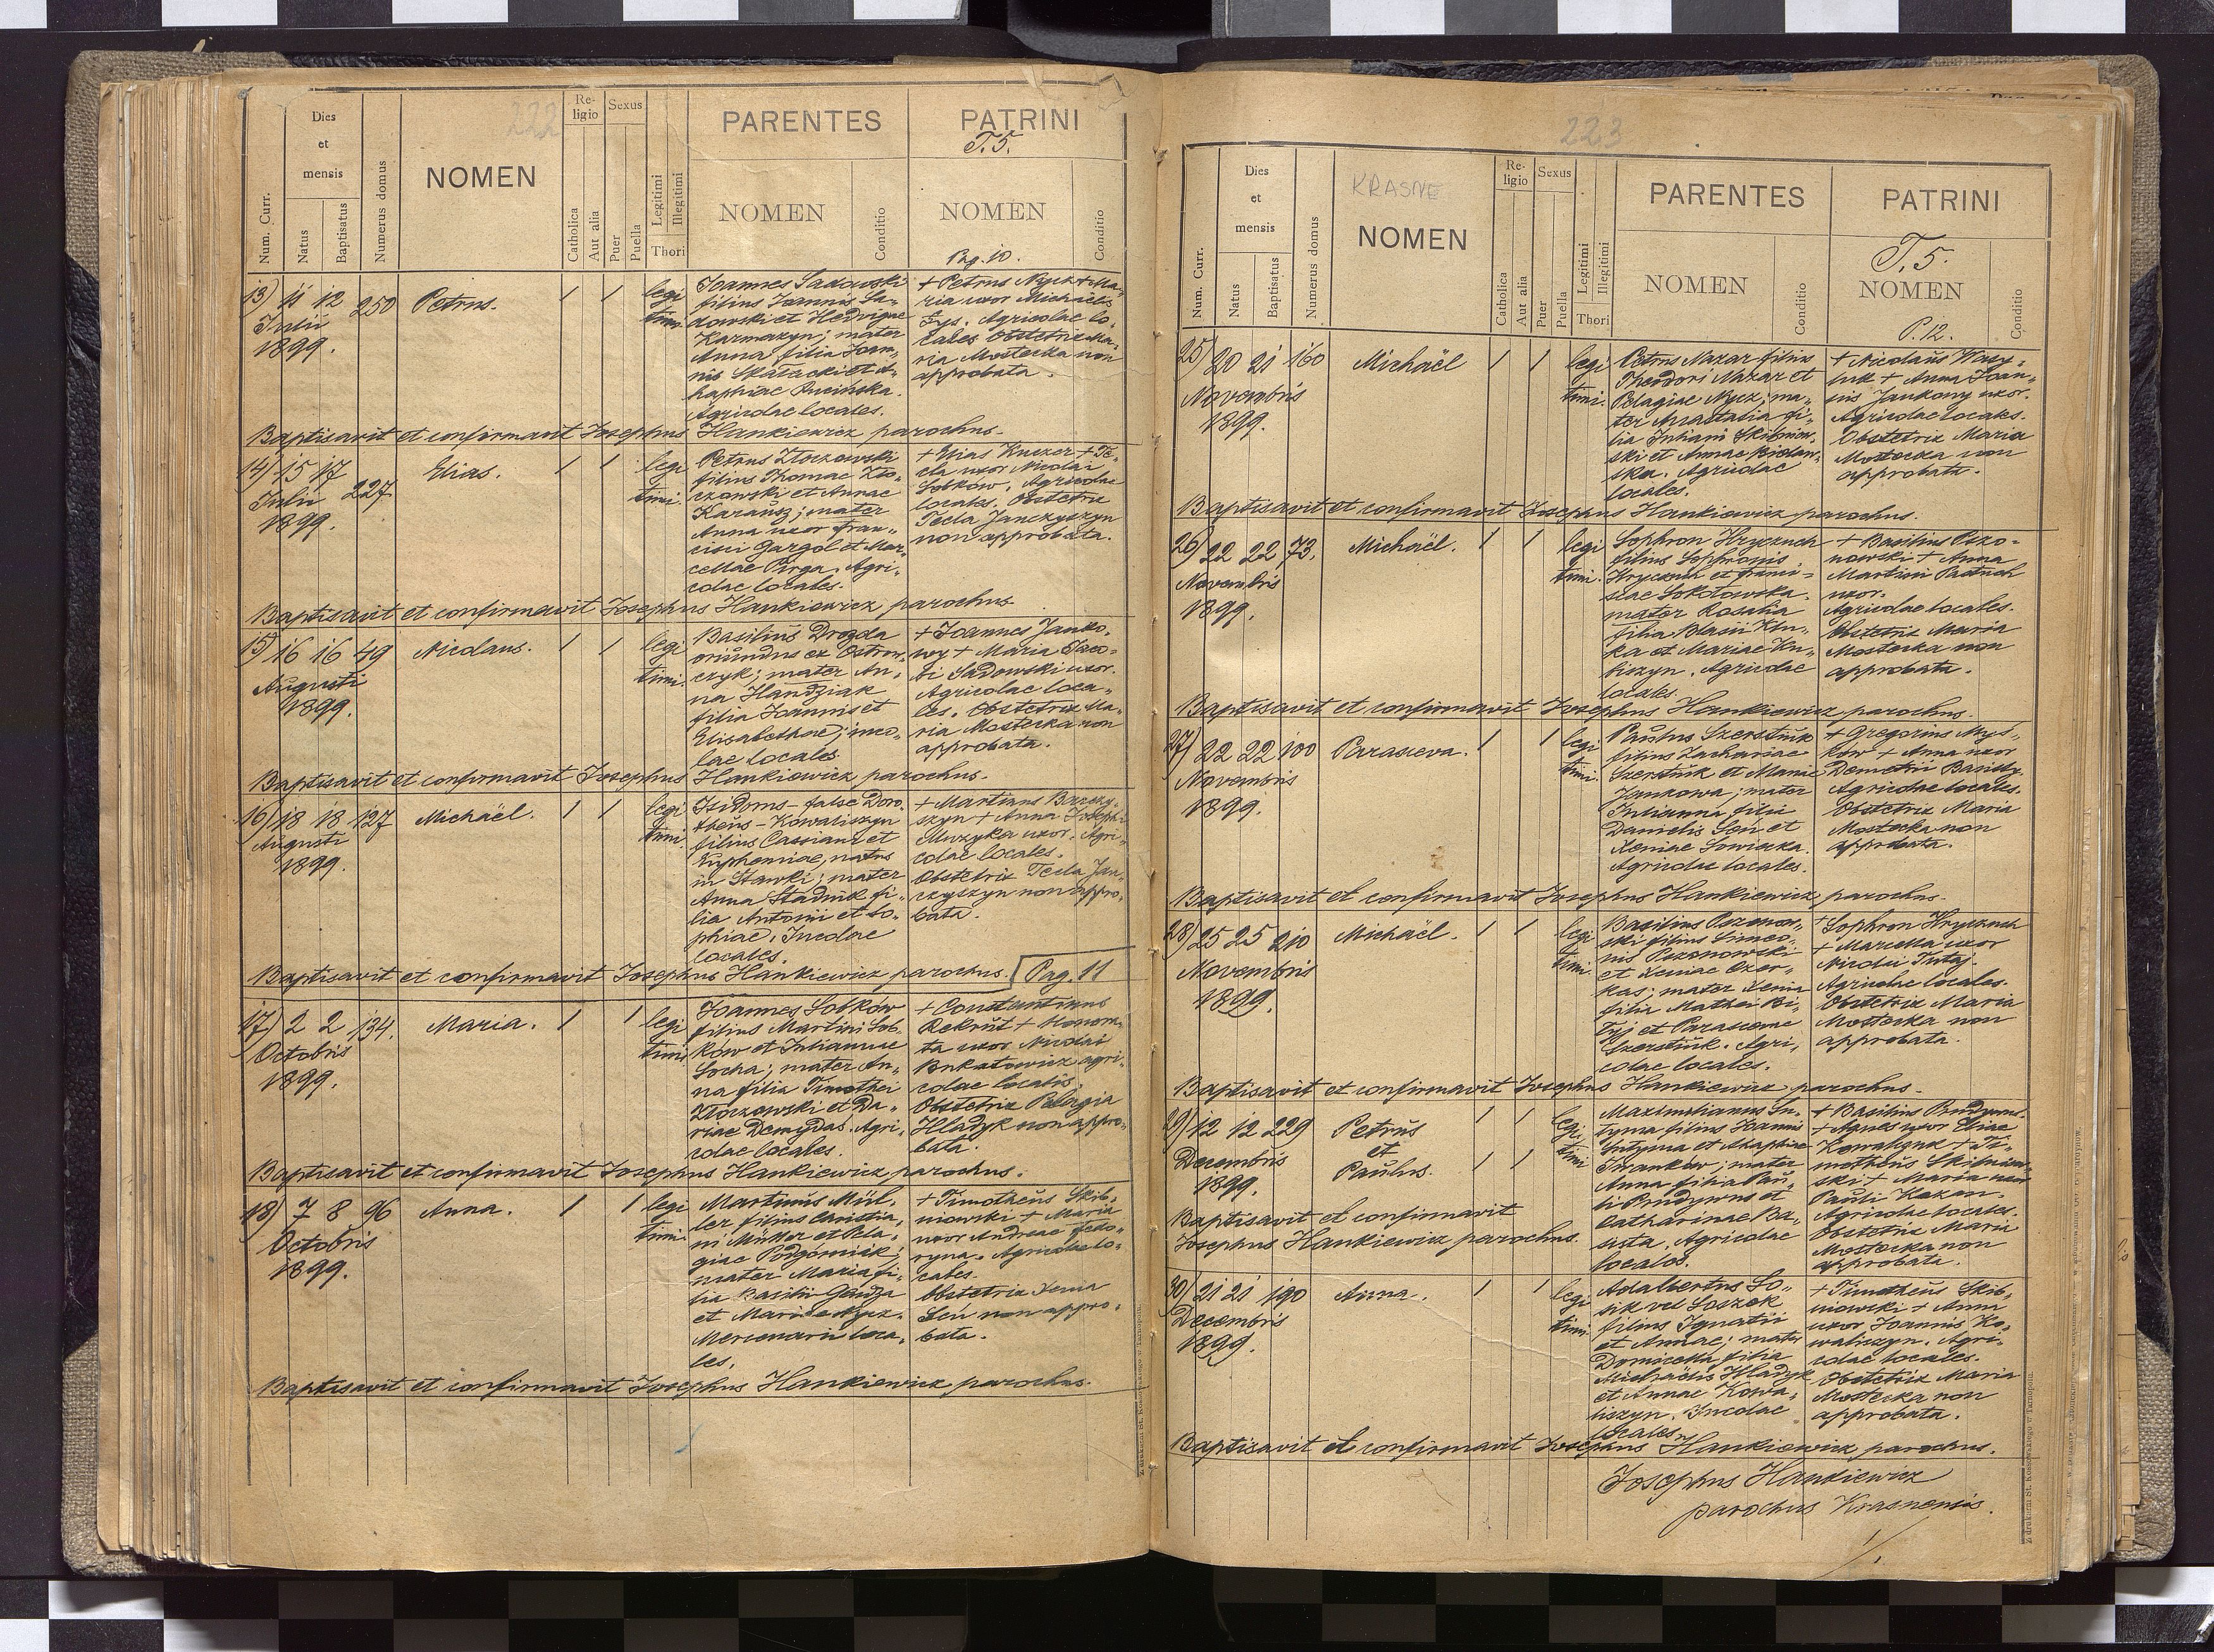 222
Dies
et
mensis
Num. Curr.
Natus
Baptisatus
Numerus domus
NOMEN
Re-
ligio
Catholica
Aut alia
Sexus
Puer
Puella
Legitimi
Illegitimi
Thori
PARENTES
NOMEN
Conditio
PATRINI
T. 5.
NOMEN
Conditio
Pag. 10.
13) 11 12 250 Petrus. 1 1 legi
Julii timi.
1899.
Joannes Sadowski
filius Joannis Sa-
dowski et Hedvigae
Karmazyn; mater
Anna filia Joan-
nis Skalacki et A-
haphiae Rucińska.
Agricolae locales.
+ Petrus Nycz + Ma-
ria uxor Michaelis
Lys. Agricolae lo-
cales. Obstetrix Ma-
ria Mostecka non
approbata.
Baptisavit et confirmavit Josephus Hankiewicz parochus.
14) 15 17 227. Elias. 1 1 legi
Julii timi.
1899.
Petrus Złoczowski
filius Thomae Zło-
czowski et Annae
Karausz; mater
Anna uxor Fran-
cisci Gargol et Mar-
cellae Pirga. Agri-
colae locales.
+ Elias Kuczer + Te-
cla uxor Nicolai
Sobków. Agricolae
locales. Obstetrix
Tecla Janczyszyn
non approbata.
Baptisavit et confirmavit Josephus Hankiewicz parochus.
15) 16 16 49 Nicolaus. 1 1 legi
Augusti timi.
1899.
Basilius Drozda
oriundus ex Ostrow-
czyk; mater An-
na Handziak
filia Joannis et
Elisabethae; inco-
lae locales.
+ Joannes Janko-
wy + Maria Jaco-
bi Sadowski uxor.
Agricolae loca-
les. Obstetrix Ma-
ria Mostecka non
approbata.
Baptisavit et confirmavit Josephus Hankiewicz parochus.
16) 18 18 127 Michaël. 1 1 legi
Augusti timi.
1899.
Isidorus - false Doro-
theus - Kowaliszyn
filius Cassiani et
Euphemiae, natus
in Stawki; mater
Anna Stadnik fi-
lia Antonii et So-
phiae. Incolae
locales.
+ Martianus
szyn + Anna Josephi
Muzyka uxor. Agri-
colae locales.
Obstetrix Tecla Jan-
czyszyn non appro-
bata.
Baptisavit et confirmavit Josephus Hankiewicz parochus. Pag. 11
17) 2 2 134. Maria. 1 1 legi
Octobris timi.
1899.
Joannes Sobków
filius Martini Sob-
ków et Julianae
Socha; mater An-
na filia Timothei
Złoczowski et Da-
riae Demydas. Agri-
colae locales.
+ Constantinus
Rekrut + Honora-
ta uxor Nicolai
Bukatowicz agri-
colae locales.
Obstetrix Pelagia
Hladyk non appro-
bata.
Baptisavit et confirmavit Josephus Hankiewicz parochus.
18) 7 8 96 Anna. 1 1 legi
Octobris timi.
1899.
Martinus Mül-
ler filius Christia-
ni Müller et Pela-
giae Podgórniak;
mater Maria fi-
lia Basilii Gawza
et Mariae
Mercenarii loca-
les.
+ Timotheus Skib-
niowski + Maria
uxor Andreae Fedo-
ryna. Agricolae lo-
cales.
Obstetrix Xenia
Seń non appro-
bata.
Baptisavit et confirmavit Josephus Hankiewicz parochus.
Z drukarni St. Kossowskiego w Tarnopolu.
223
Dies
et
mensis
Num. Curr.
Natus
Baptisatus
Numerus domus
KRASNE
NOMEN
Re-
ligio
Catholica
Aut alia
Sexus
Puer
Puella
Legitimi
Illegitimi
Thori
PARENTES
NOMEN
Conditio
PATRINI
T. 5.
NOMEN
Conditio
P. 12.
25) 20 21 160 Michaël 1 1 legi
Novembris timi.
1899.
Petrus Mazar filius
Theodori Mazar et
Pelagiae Nycz; ma-
ter Anastasia fi-
lia Juliani Skibniow-
ski et Annae Bielaw-
ska. Agricolae
locales.
+ Nicolaus Wasy-
luk + Anna Joan-
nis Jankowy uxor.
Agricolae locales.
Obstetrix Maria
Mostecka non
approbata.
Baptisavit et confirmavit Josephus Hankiewicz parochus.
26) 22 22 73. Michaël. 1 1 legi
Novembris timi.
1899.
Sophron Hryczuch
filius Sophronis
Hryczuch et
Sokołowska.
mater Rosalia
filia Blasii
et Mariae
liszyn. Agricolae
locales.
+ Basilius Pszo-
nowski + Anna
Martini Pastuch
uxor.
Agricolae locales.
Obstetrix Maria
Mostecka non
approbata.
Baptisavit et confirmavit Josephus Hankiewicz parochus.
27) 22 22 100 Parasceva. 1 1 legi
Novembris timi.
1899.
Paulus Szerstiuk
filius Zachariae
Szerstiuk et Mariae
Jankowa; mater
Julianna filia
Danielis Seń et
Xeniae Sowiacka.
Agricolae locales.
+ Gregorius Mys-
ków + Anna uxor
Demetrii Basisty.
Agricolae locales.
Obstetrix Maria
Mostecka non
approbata.
Baptisavit et confirmavit Josephus Hankiewicz parochus.
28) 25 25 210 Michaël. 1 1 legi
Novembris timi.
1899.
Basilius Pszonow-
ski filius Simeo-
nis Pszonowski
et Xeniae Ozer-
kas; mater Xenia
filia Mathei Bi-
łyj et Parascevae
Szerstiuk. Agri-
colae locales.
+ Sophron Hryczuch
+ Marcella uxor
Nicolai Tutaj.
Agricolae locales.
Obstetrix Maria
Mostecka non
approbata.
Baptisavit et confirmavit Josephus Hankiewicz parochus.
29) 12 12 229 Petrus 1 1 legi
Decembris et timi
1899. Paulus. 1 1
Maximilianus Su-
tyma filius Joannis
Sutyma et Ahaphiae
Iwanków; mater
Anna filia Pau-
li Prudywus et
Catharinae Ba-
sista. Agricolae
locales.
+ Basilius Prudywus
+ Agnes uxor Eliae
Kowalszuk + Ti-
motheus Skibniow-
ski + Maria uxor
Pauli Kazan.
Agricolae locales.
Obstetrix Maria
Mostecka non
approbata.
Baptisavit et confirmavit
Josephus Hankiewicz parochus.
30) 21 21 190 Anna. 1 1 legi
Decembris timi.
1899.
Adalbertus So-
sik vel Soszek
filius Ignatii
et Annae; mater
Domicella filia
Michaëlis Hladyk
et Annae Kowa-
liszyn. Incolae
locales.
+ Timotheus Skib-
niowski + Anna
uxor Joannis Ko-
waliszyn. Agri-
colae locales.
Obstetrix Maria
Mostecka non
approbata.
Baptisavit et confirmavit Josephus Hankiewicz parochus.
Josephus Hankiewicz
parochus Krasnensis.
Z drukarni St. Kossowskiego w Tarnopolu.